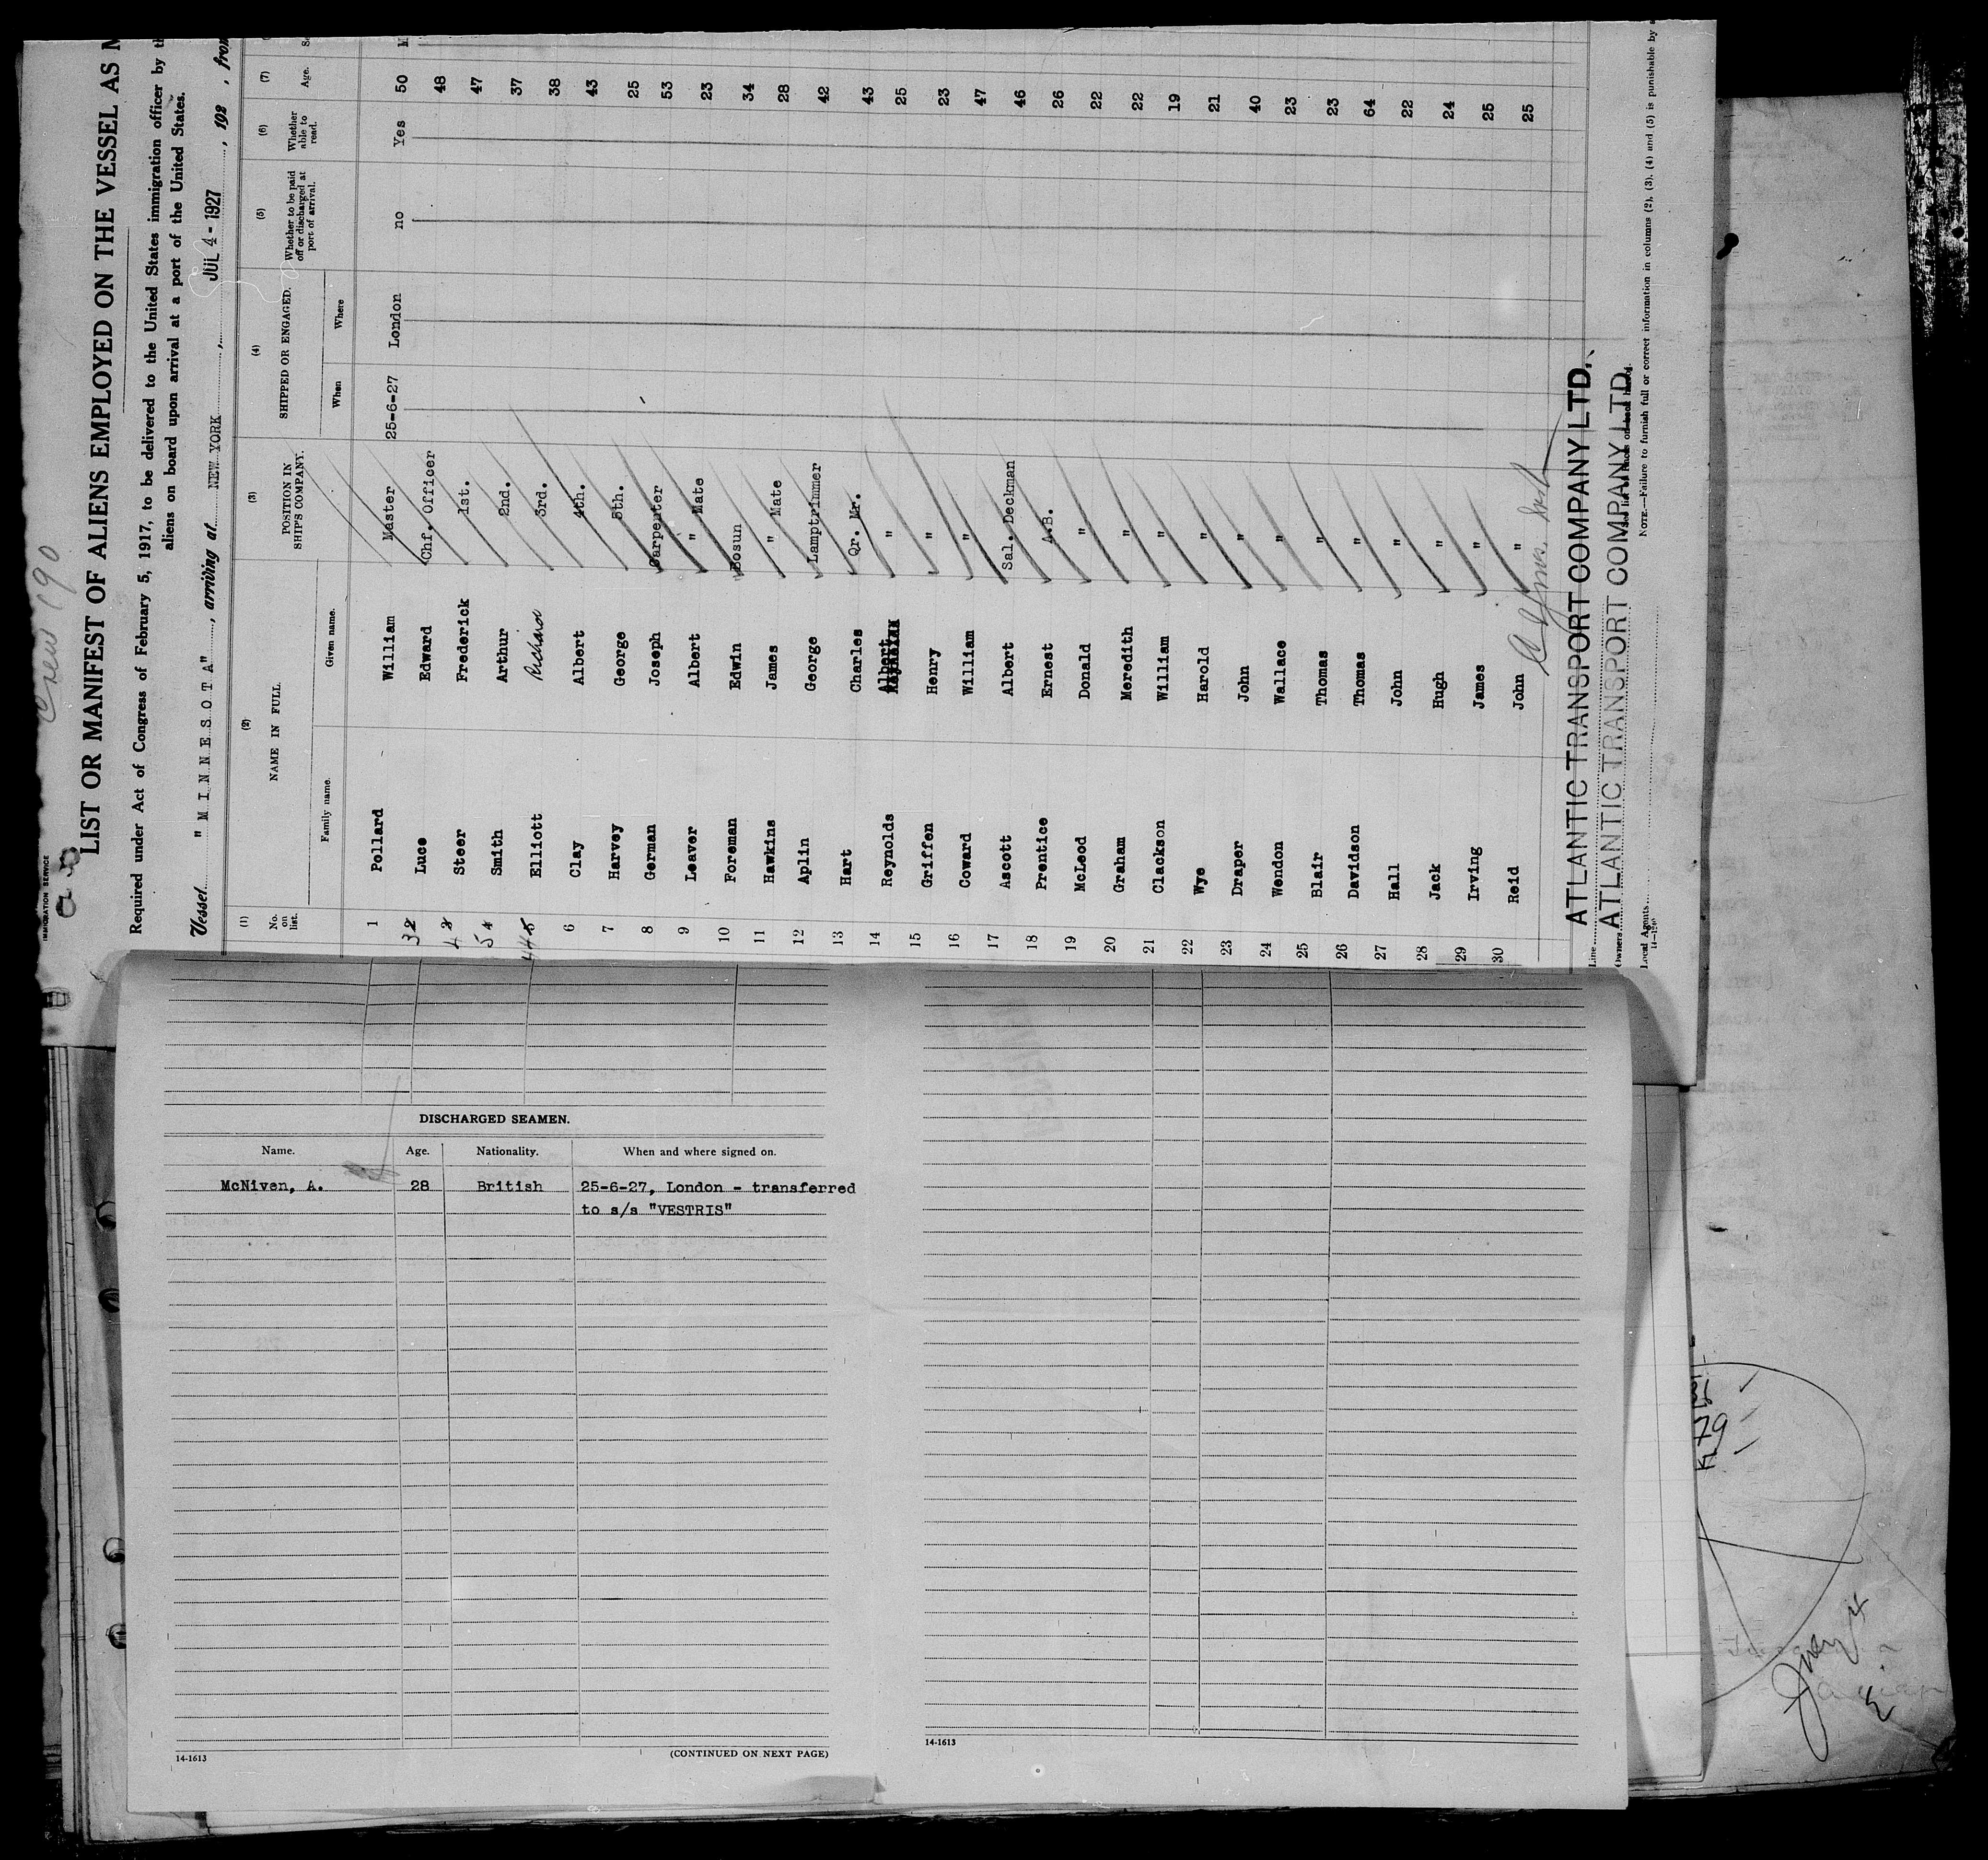 Crew 190
IMMIGRATION SERVICE
LIST OR MANIFEST OF ALIENS EMPLOYED ON THE VESSEL AS M
Required under Act of Congress of February 5, 1917, to be delivered to the United States immigration officer by th
aliens on board upon arrival at a port of the United States.
Vessel "MINNESOTA", arriving at NEW YORK, JUL 4 - 1927, 192 , from
(1) (2) (3) (4) (5) (6) (7)
No. on list. NAME IN FULL. POSITION IN SHIP'S COMPANY. SHIPPED OR ENGAGED. Whether to be paid off or discharged at port of arrival. Whether able to read. Age. Se
Family name. Given name. When Where
1 Pollard William Master 25-6-27 London no Yes 50 M
2 3 Luce Edward Chf. Officer 48
3 4 Steer Frederick 1st. 47
4 5 Smith Arthur 2nd. 37
5 4 Elliott Richard 3rd. 38
6 Clay Albert 4th. 43
7 Harvey George 5th. 25
8 German Joseph Carpenter 53
9 Leaver Albert " Mate 23
10 Foreman Edwin Bosun 34
11 Hawkins James " Mate 28
12 Aplin George Lamptrimmer 42
13 Hart Charles Qr. Mr. 43
14 Reynolds Albert " 25
15 Griffen Henry " 23
16 Coward William " 47
17 Ascott Albert Sal. Deckman 46
18 Prentice Ernest A.B. 26
19 McLeod Donald " 22
20 Graham Meredith " 22
21 Clackson William " 19
22 Wye Harold " 21
23 Draper John " 40
24 Wendon Wallace " 23
25 Blair Thomas " 23
26 Davidson Thomas " 64
27 Hall John " 22
28 Jack Hugh " 24
29 Irving James " 25
30 Reid John " 25
Line ATLANTIC TRANSPORT COMPANY LTD.
Owners ATLANTIC TRANSPORT COMPANY LTD.
Local Agents
14-1240
NOTE.—Failure to furnish full or correct information in columns (2), (3), (4) and (5) is punishable by a
DISCHARGED SEAMEN.
Name. Age. Nationality. When and where signed on.
McNiven, A. 28 British 25-6-27, London - transferred
to s/s "VESTRIS"
14-1613 (CONTINUED ON NEXT PAGE)
14-1613